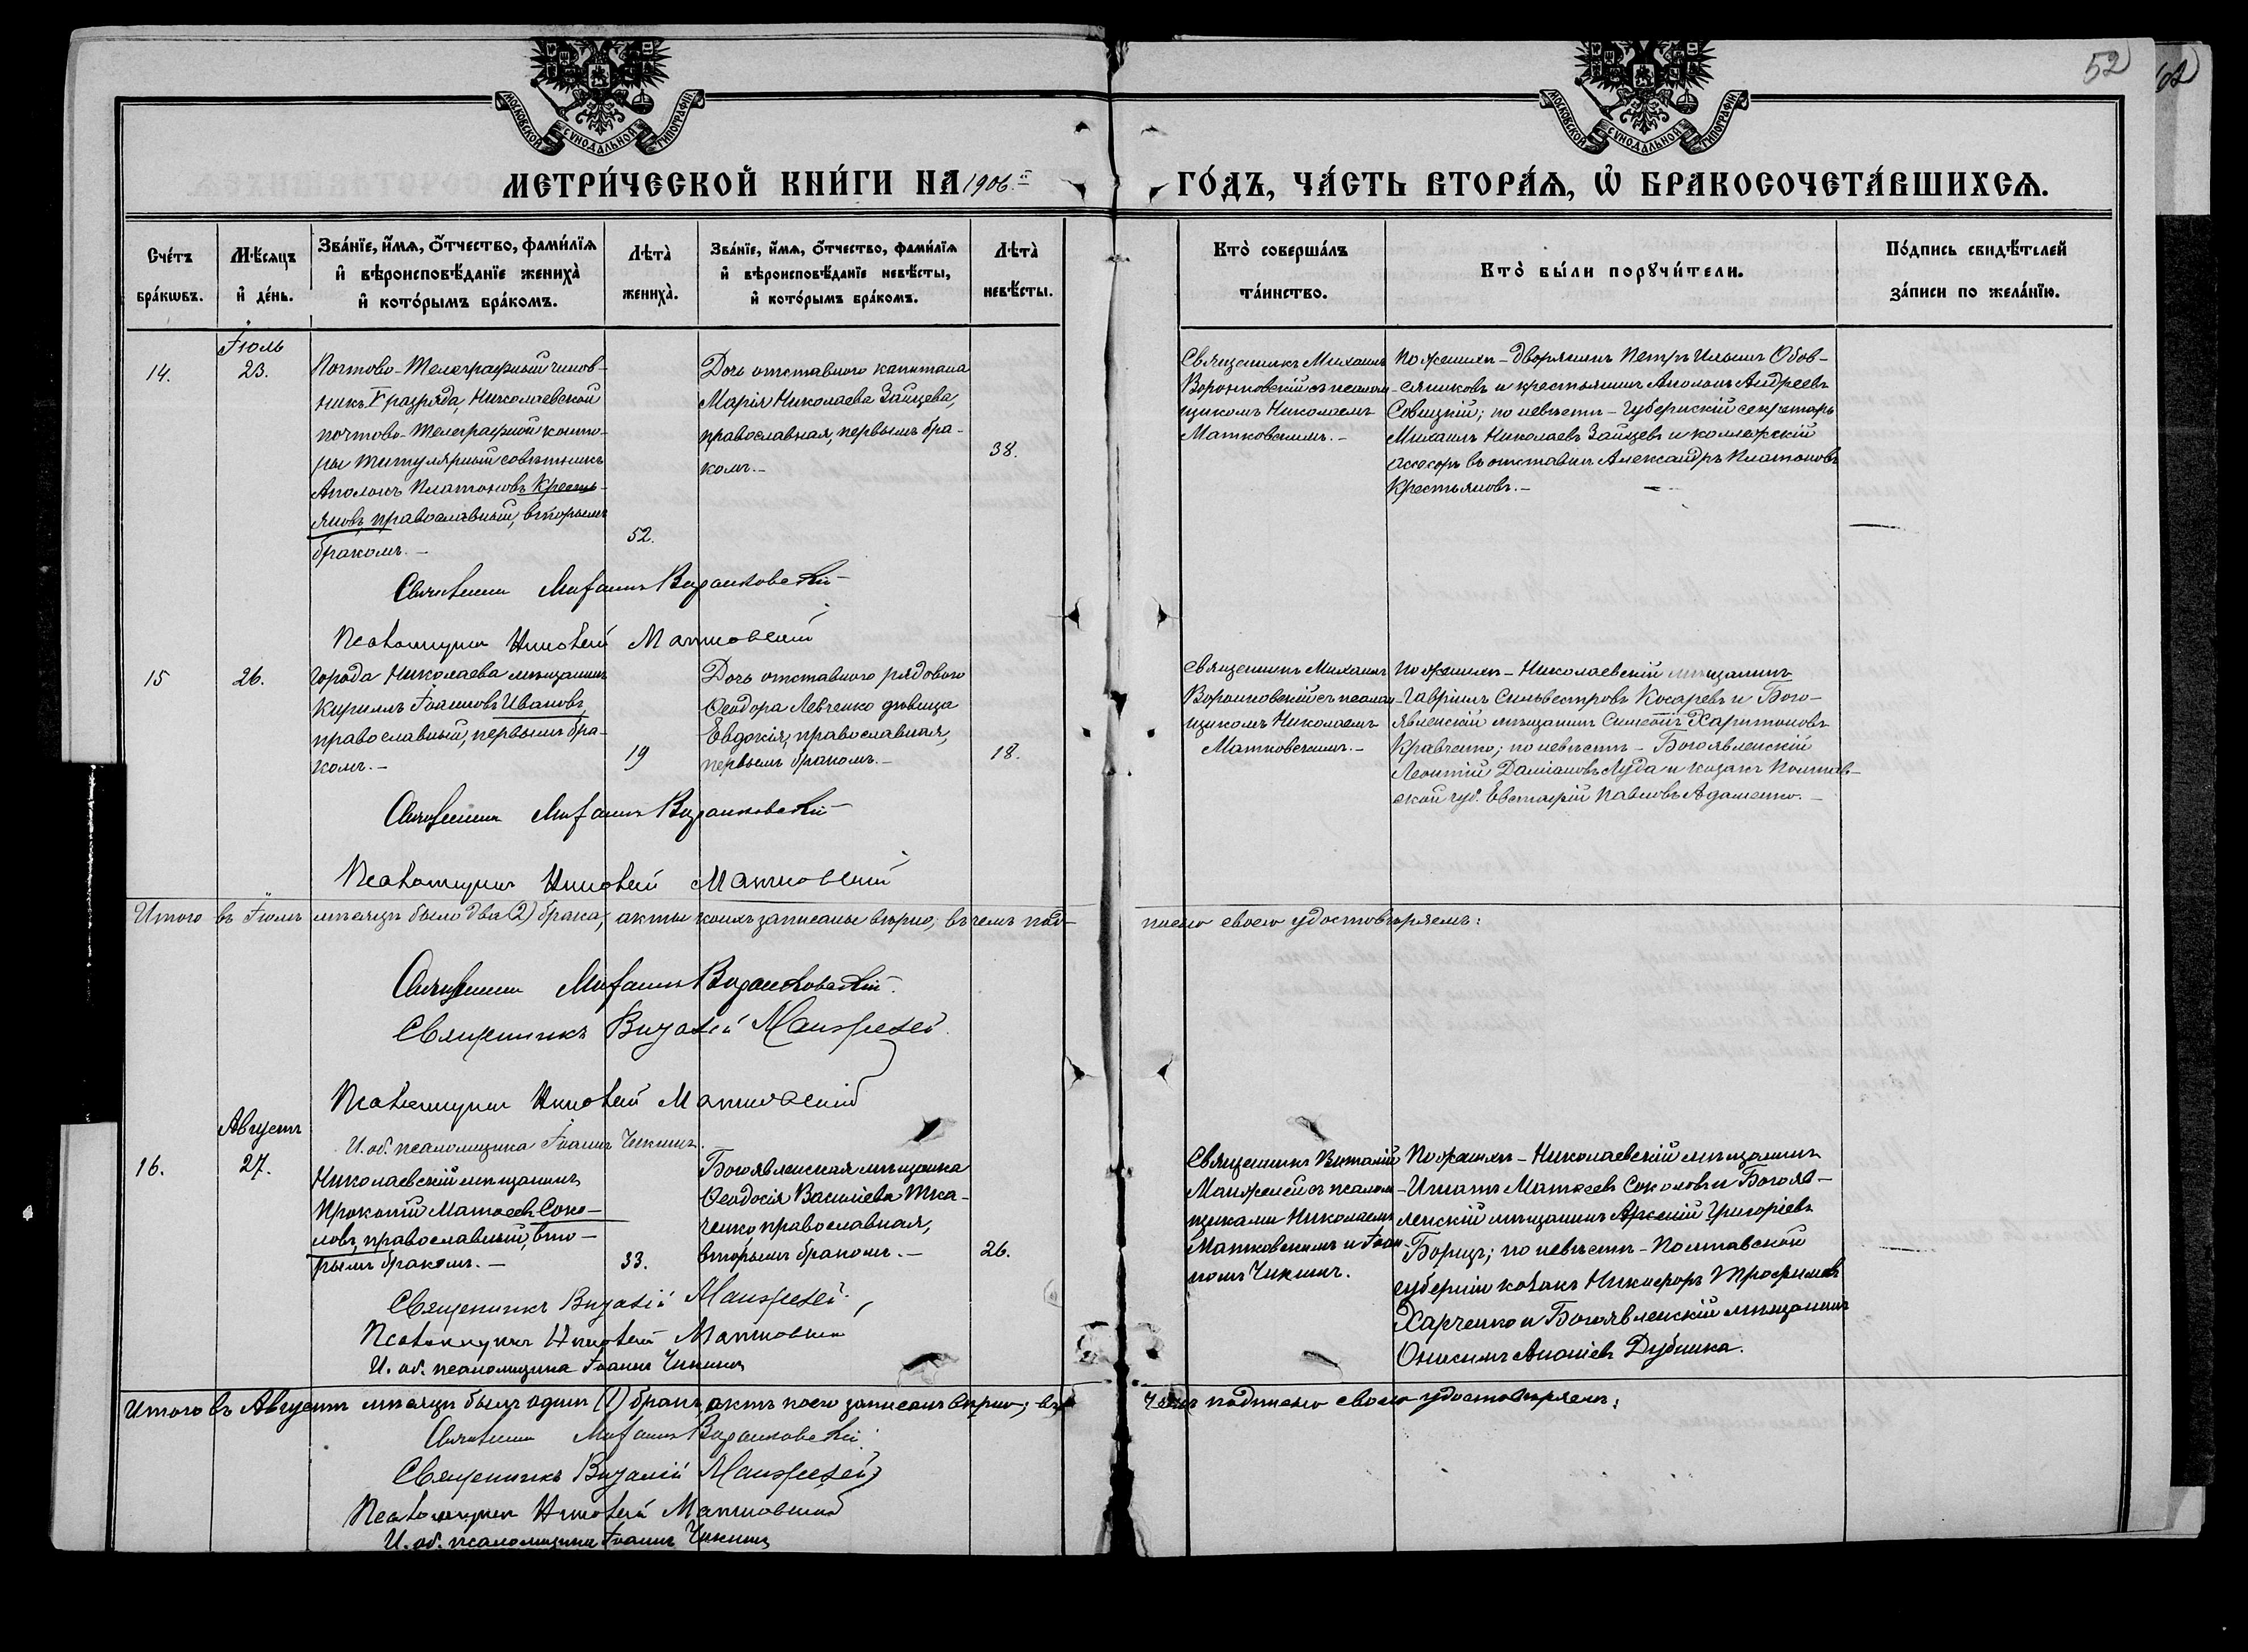 52
МОСКОВСКОЙ СѴНОДАЛЬНОЙ ТИПОГРАФІИ.
МОСКОВСКОЙ СѴНОДАЛЬНОЙ ТИПОГРАФІИ.
МЕТРИ́ЧЕСКОЙ КНИ́ГИ НА 1906.й ГО́ДЪ, ЧА́СТЬ ВТОРА́Ѧ, Ѽ БРАКОСОЧЕТА́ВШИХСѦ.
Сче́тъ
бра́кѡвъ.
Мѣ́сяцъ
и҆ де́нь.
Зва́нїе, и҆́мѧ, ѻ҆́тчество, фами́лїѧ
и҆ вѣроисповѣ́данїе жениха̀
и҆ кото́рымъ бра́комъ.
Лѣта̀
жениха̀.
Зва́нїе, и҆́мѧ, ѻ҆́тчество, фами́лїѧ
и҆ вѣроисповѣ́данїе невѣ́сты,
и҆ кото́рымъ бра́комъ.
Лѣта̀
невѣ́сты.
Кто̀ соверша́лъ
та́инство.
Кто̀ бы́ли порꙋчи́тели.
По́дпись свидѣ́телей
за́писи по жела́нїю.
14.
Іюль
23.
Почтово-Телеграфный чинов-
никъ V разряда, Николаевской
почтово-Телеграфной конто-
ры титулярный совѣтникъ
Аполонъ Платоновъ Кресть-
яновъ, православный, вторымъ
бракомъ.-
52.
Дочь отставного капитана
Марія Николаева Зайцева,
православная, первымъ бра-
комъ.-
38.
Священникъ Михаилъ
Воронковскій съ псалом-
щикомъ Николаемъ
Матковскимъ.-
По женихѣ - дворянинъ Петръ Ильинъ Обов-
сянниковъ и крестьянинъ Аполонъ Андреевъ
Совицкій; по невѣстѣ - Губернскій секретарь
Михаилъ Николаевъ Зайцевъ и коллежскій
асессоръ въ отставкѣ Александръ Платоновъ
Крестьяновъ.-
Священникъ Михаилъ Воронковскій
Псаломщикъ Николай Матковскій
15
26.
Города Николаева мѣщанинъ
Кириллъ Іоанновъ Ивановъ,
православный, первымъ бра-
комъ.-
19
Дочь отставного рядового
Ѳеодора Левченко дѣвица
Евдокія, православная,
первымъ бракомъ.-
18.
Священникъ Михаилъ
Воронковскій съ псалом-
щикомъ Николаемъ
Матковскимъ.-
По женихѣ - Николаевскій мѣщанинъ
Гавріилъ Сильвестровъ Косаревъ и Бого-
явленскій мѣщанинъ Симеонъ Харитоновъ
Кравченко; по невѣстѣ - Богоявленскій
Леонтій Даміановъ Луда и козакъ Полтав-
ской губ. Евстафій Павловъ Адаменко.-
Священникъ Михаилъ Воронковскій
Псаломщикъ Николай Матковскій
Итого въ Іюлѣ мѣсяцѣ было два (2) брака, акты коихъ записаны вѣрно, въ чемъ под-
писью своею удостовѣряемъ:
Священникъ Михаилъ Воронковскій.
Священникъ Виталій Манжелей.
Псаломщикъ Николай Матковскій
И. об. псаломщика Іоаннъ Чикинъ.
16.
Августъ
27.
Николаевскій мѣщанинъ
Прокопій Матѳеевъ Соко-
ловъ, православный, вто-
рымъ бракомъ.-
33.
Богоявленская мѣщанка
Ѳеодосія Василіева Тка-
ченко, православная,
вторымъ бракомъ.-
26.
Священникъ Виталій
Манжелей съ псалом-
щиками Николаемъ
Матковскимъ и Іоан-
номъ Чикинъ.
По женихѣ - Николаевскій мѣщанинъ
Игнатъ Матѳеевъ Соколовъ и Богояв-
ленскій мѣщанинъ Арсеній Григоріевъ
Борищъ; по невѣстѣ - Полтавской
губерніи козакъ Никифоръ Трофимовъ
Харченко и Богоявленскій мѣщанинъ
Онисимъ Ананіевъ Дубинка.
Священникъ Виталій Манжелей.
Псаломщикъ Николай Матковскій
И. об. псаломщика Іоаннъ Чикинъ
Итого въ Августѣ мѣсяцѣ былъ одинъ (1) бракъ, актъ коего записанъ вѣрно; въ
чемъ подписью своею удостовѣряемъ:
Священникъ Михаилъ Воронковскій.
Священникъ Виталій Манжелей
Псаломщикъ Николай Матковскій
И. об. псаломщика Іоаннъ Чикинъ